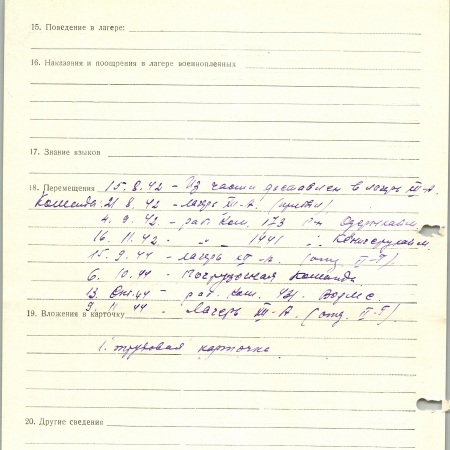 15. Поведение в лагере:
16. Наказания и поощрения в лагере военнопленных
17. Знание языков
18. Перемещения 15.8.42 - Из части доставлен в лагерь III-А.
Команда: 21 8.42 - лагерь III-А.
4.9.42. - раб. ком. 173
16.11.42. - " " 1441 "
15.9.44 - лагерь III-А.
6.10.44 - Погрузочная команда.
13. Окт. 44 - раб. ком.
19. Вложения в карточку 9.11.44 - Лагерь III-А.
1. трудовая карточка
20. Другие сведения